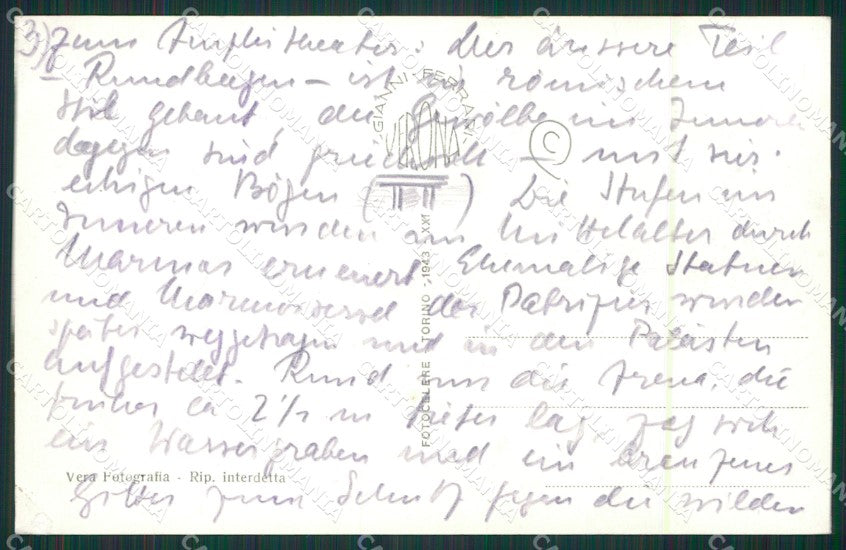 3) Zum Amphitheater: Der äussere Teil
- Rundbogen - ist in römischem
Stil gebaut, die Gewölbe im Innern
dagegen sind griechisch - mit vier-
eckigen Bögen ( ) Die Stufen im
Inneren wurden im Mittelalter durch
Marmor erneuert. Ehemalige Statuen
und Marmorsessel der Patrizier wurden
später weggetragen und in den Palästen
aufgestellt. Rund um die Arena, die
früher ca 2½ m tiefer lag, zog sich
ein Wassergraben und ein
Gitter zum Schutz gegen die wilden
GIANNI FERRARI
VERONA
C
FOTOCELERE TORINO 1943 XXI
Vera Fotografia - Rip. interdetta
CARTOLINOMANIA